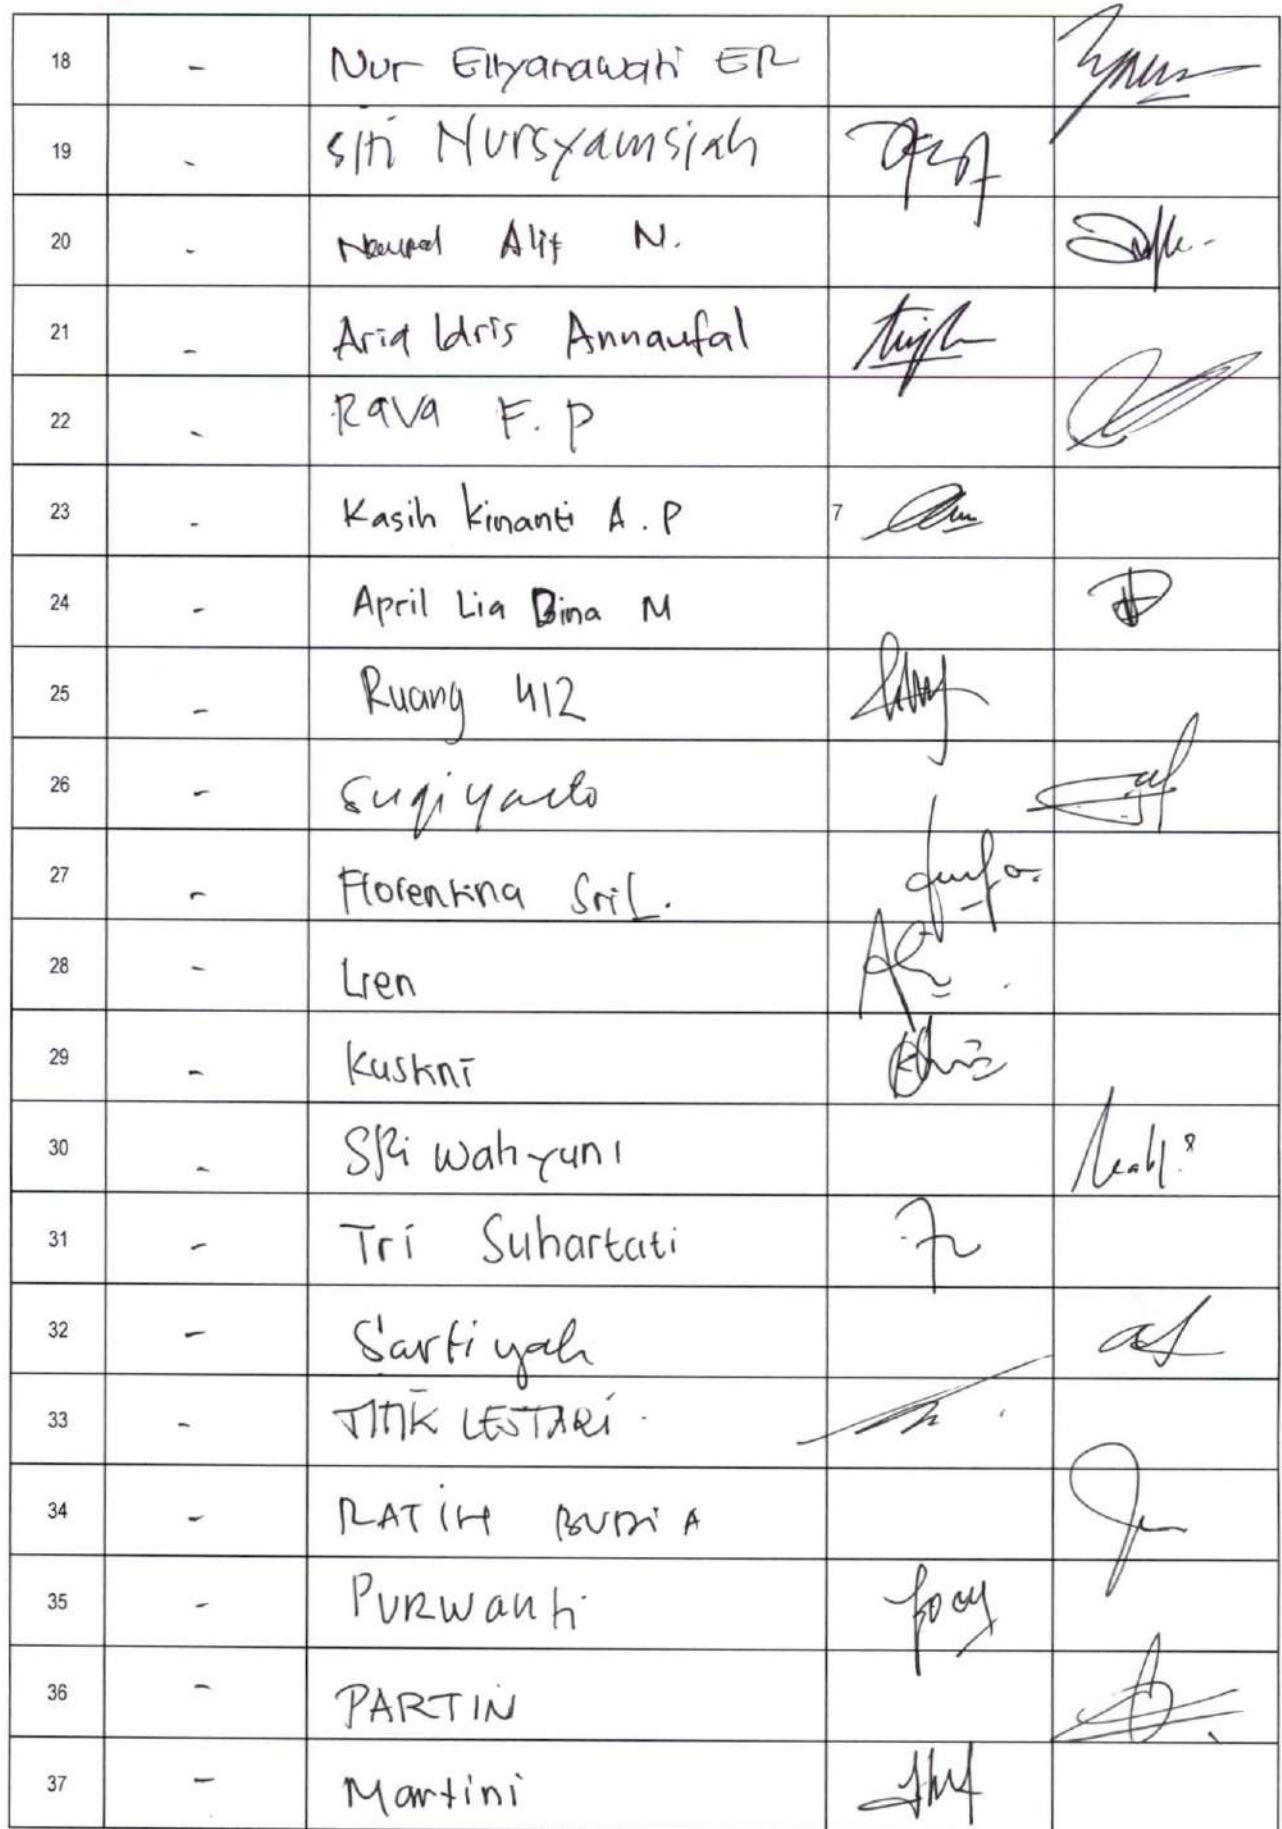 18 - Nur Ellyanawati ER
19 - Siti Nursyamsiah
20 - Naupal Alif N.
21 - Aria Idris Annaufal
22 - Rava F. P
23 - Kasih Kinanti A. P 7
24 - April Lia Bina M
25 - Ruang 412
26 - Sugiyarto
27 - Florentina Sri L.
28 - Lien
29 - Kustini
30 - SRi wahyuni
31 - Tri Suhartati
32 - Sartiyah
33 - TITIK LESTARi
34 - RATiH BUDiA
35 - PURWanti
36 - PARTIN
37 - Martini